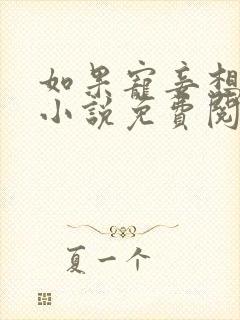 如果寵妾想
小說免費閱
夏一个